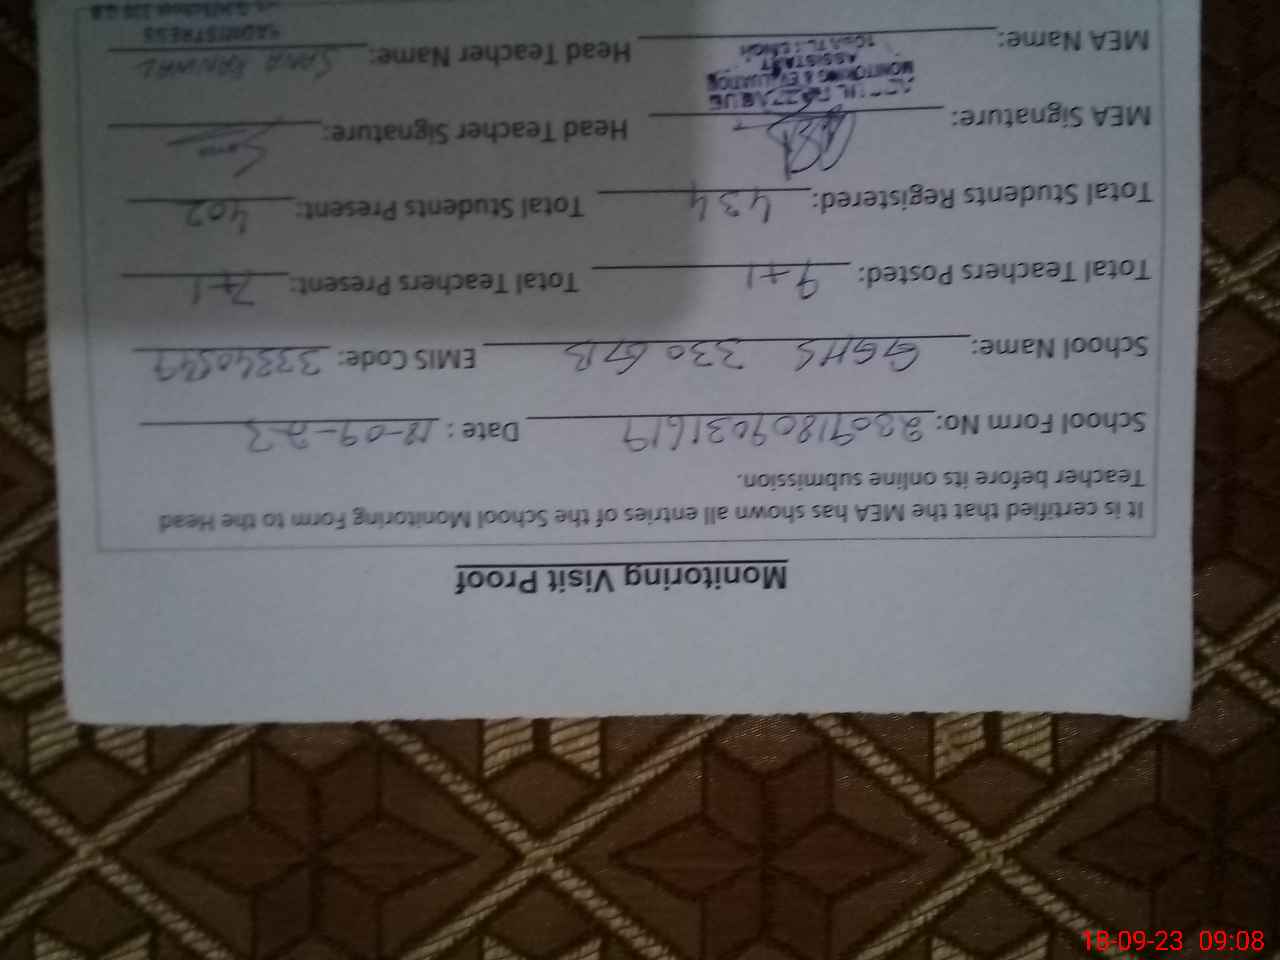 Monitoring Visit Proof
It is certified that the MEA has shown all entries of the School Monitoring Form to the Head
Teacher before its online submission.
School Form No: 23091809031619 Date : 18-09-23
School Name: GGHS 330 GB EMIS Code:
Total Teachers Posted: 9+1 Total Teachers Present: 7+1
Total Students Registered: 434 Total Students Present: 402
MEA Signature: Head Teacher Signature: Sana
MONITORING & EVALUATION
ASSISTANT
MEA Name: Head Teacher Name: SANA
18-09-23 09:08